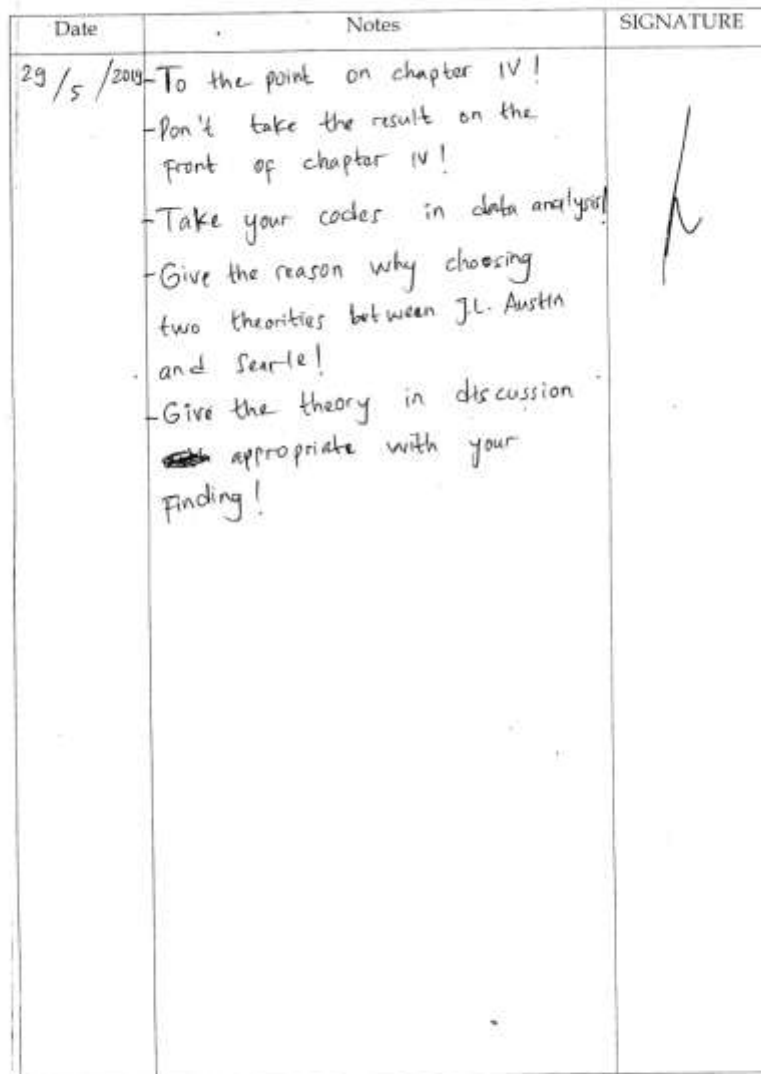 Date Notes SIGNATURE
29/5/2019 - To the point on chapter IV!
- Don't take the result on the
front of chapter IV!
- Take your codes in data analysis!
- Give the reason why choosing
two theorities between J.L. Austin
and Searle!
- Give the theory in discussion
appropriate with your
Finding!